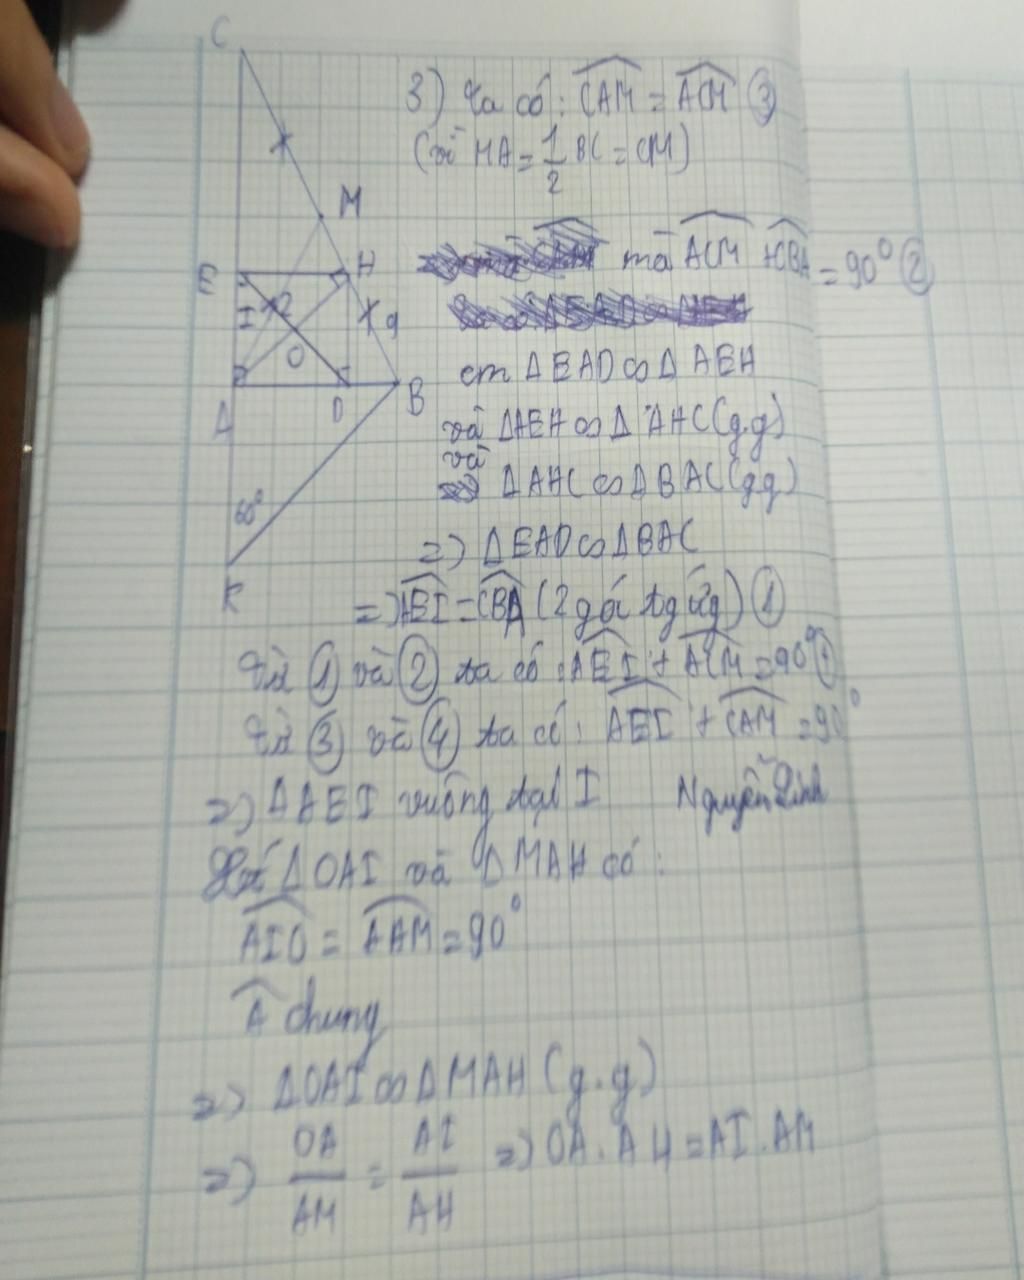 C
3) Ta có: CAM = ACM ③
(vì MA = 1/2 BC = CM)
M
E
H
mà ACM + CBA = 90° ②
I
O
cm ΔEAD ∽ ΔAEH
A D B
và ΔAEH ∽ ΔAHC (g.g)
và
ΔAHC ∽ ΔBAC (g.g)
60°
=) ΔEAD ∽ ΔBAC
K
=) AEI = CBA (2 góc tg ứg) ①
Từ ① và ② ta có: AEI + ACM = 90° ④
Từ ③ và ④ ta có: AEI + CAM = 90°
=) ΔAEI vuông tại I Nguyễn Linh
Xét ΔOAI và ΔMAH có:
AIO = AAM = 90°
A chung
=) ΔOAI ∽ ΔMAH (g.g)
=) OA/AM = AI/AH =) OA.AH = AI.AM